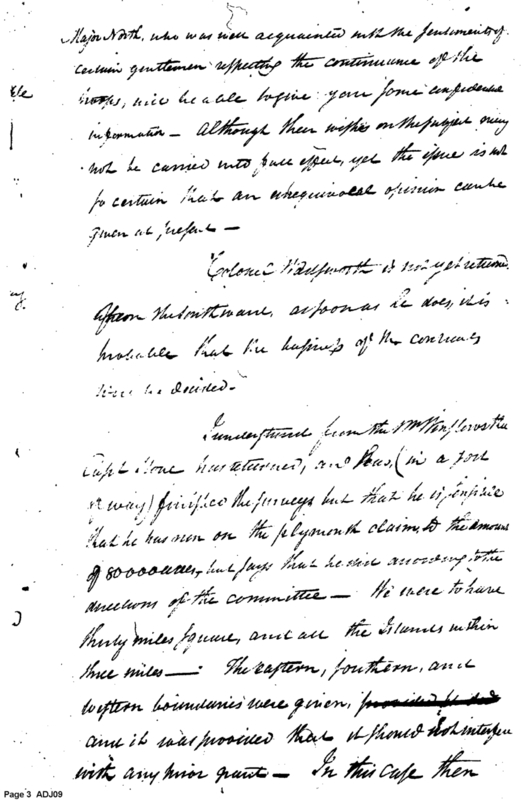 Major North, who was well acquainted with the sentiments of
certain gentlemen respecting the continuance of the
troops, will be able to give you some confidential
information — Although their wishes on the subject may
not be carried into full effect, yet the issue is not
so certain that an unequivocal opinion can be
given at present —
Colonel Wadsworth is not yet returned
from the Southward, as soon as he does, it is
probable that the business of the contracts
will be decided.
I understand from the Mr Winslows that
Capt Stone has returned, and has, (in a sort
of way) finished the surveys but that he is sensible
that he has run on the plymouth claim, to the amount
of 80000 acres, but says that he did according to the
directions of the committee — We were to have
thirty miles square, and all the Islands within
three miles — The eastern, southern, and
western boundaries were given,
and it was provided that it should not interfere
with any prior grant — In this case then
Page 3 ADJ09